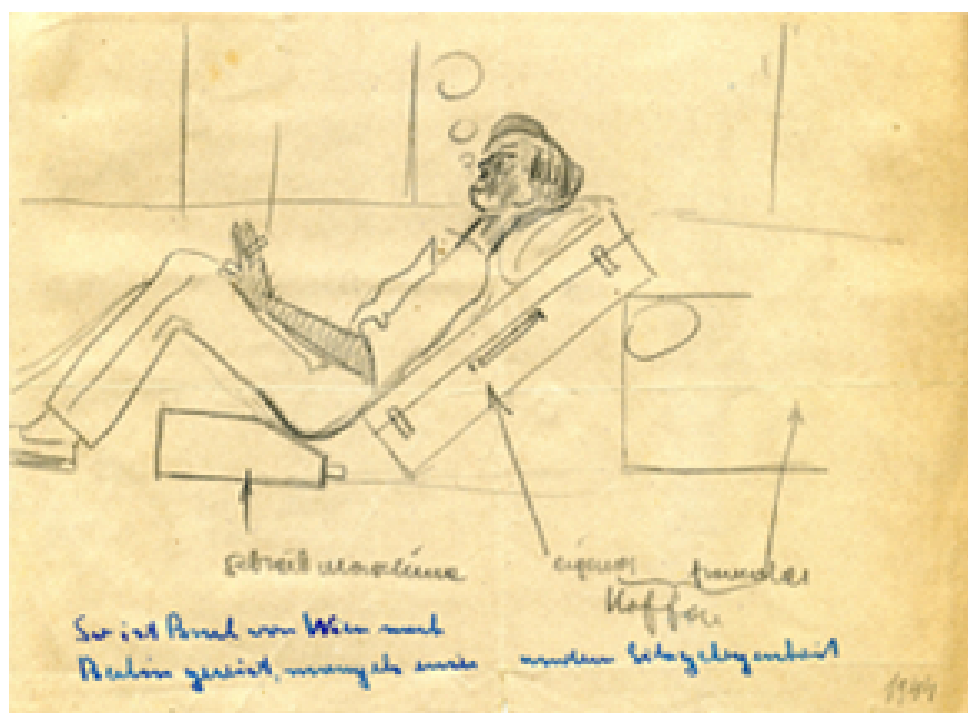 Schreibmaschine
eigener fremder
Koffer
So ist Paul von Wien nach
Berlin gereist, mangels einer andern Sitzgelegenheit
1944